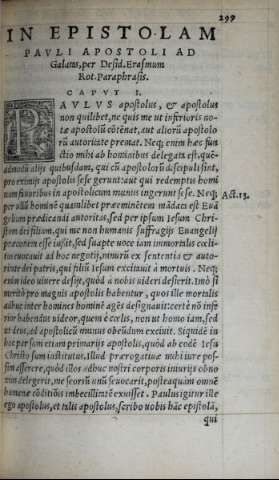 299
IN EPISTOLAM
PAVLI APOSTOLI AD
Galatas, per Desid. Erasmum
Rot. Paraphrasis.
CAPVT I.
PAVLVS apostolus, & apostolus
non quilibet, ne quis me ut inferioris no-
tæ apostolū cōtēnat, aut aliorū apostolo
rū autoritate premat. Neq; enim hæc fun
ctio mihi ab hominibus delegata est, quē-
admodū alijs quibusdam, qui cū apostolorū discipuli sint,
pro eximijs apostolis sese gerunt: aut qui redemptis homi
num fauoribus in apostolicum munus ingerunt sese. Neq;
Act. 13.
per ullū hominē quamlibet præeminētem mādata est Euā
gelium prædicandi autoritas, sed per ipsum Iesum Chri-
stum dei filium, qui me non humanis suffragijs Euangelij
præconem esse iussit, sed suapte uoce iam immortalis è cœli
tu euocauit ad hoc negotij, nimirū ex sententia & auto-
ritate dei patris, qui filiū Iesum excitauit à mortuis. Neq;
enim ideo uiuere desijt, quòd à nobis uideri desierit. Imò si
meritò pro magnis apostolis habentur, quos ille mortalis
adhuc inter homines hominē agēs designauit: certè nō infe
rior habendus uideor, quem è cœlis, non ut homo iam, sed
ut deus, ad apostolicū munus obeūdum exciuit. Siquidē in
hoc per sum etiam primarijs apostolis, quòd ab eodē Iesu
Christo sum institutus. Illud prærogatiuæ mihi iure pos-
sim asserere, quòd illos adhuc nostri corporis iniurijs obno
xius delegerit, me seorsū unū seuocarit, posteaquàm omnē
humanæ cōditionis imbecillitatē exuisset. Paulus igitur ille
ego apostolus, et talis apostolus, scribo uobis hāc epistolā,
qui